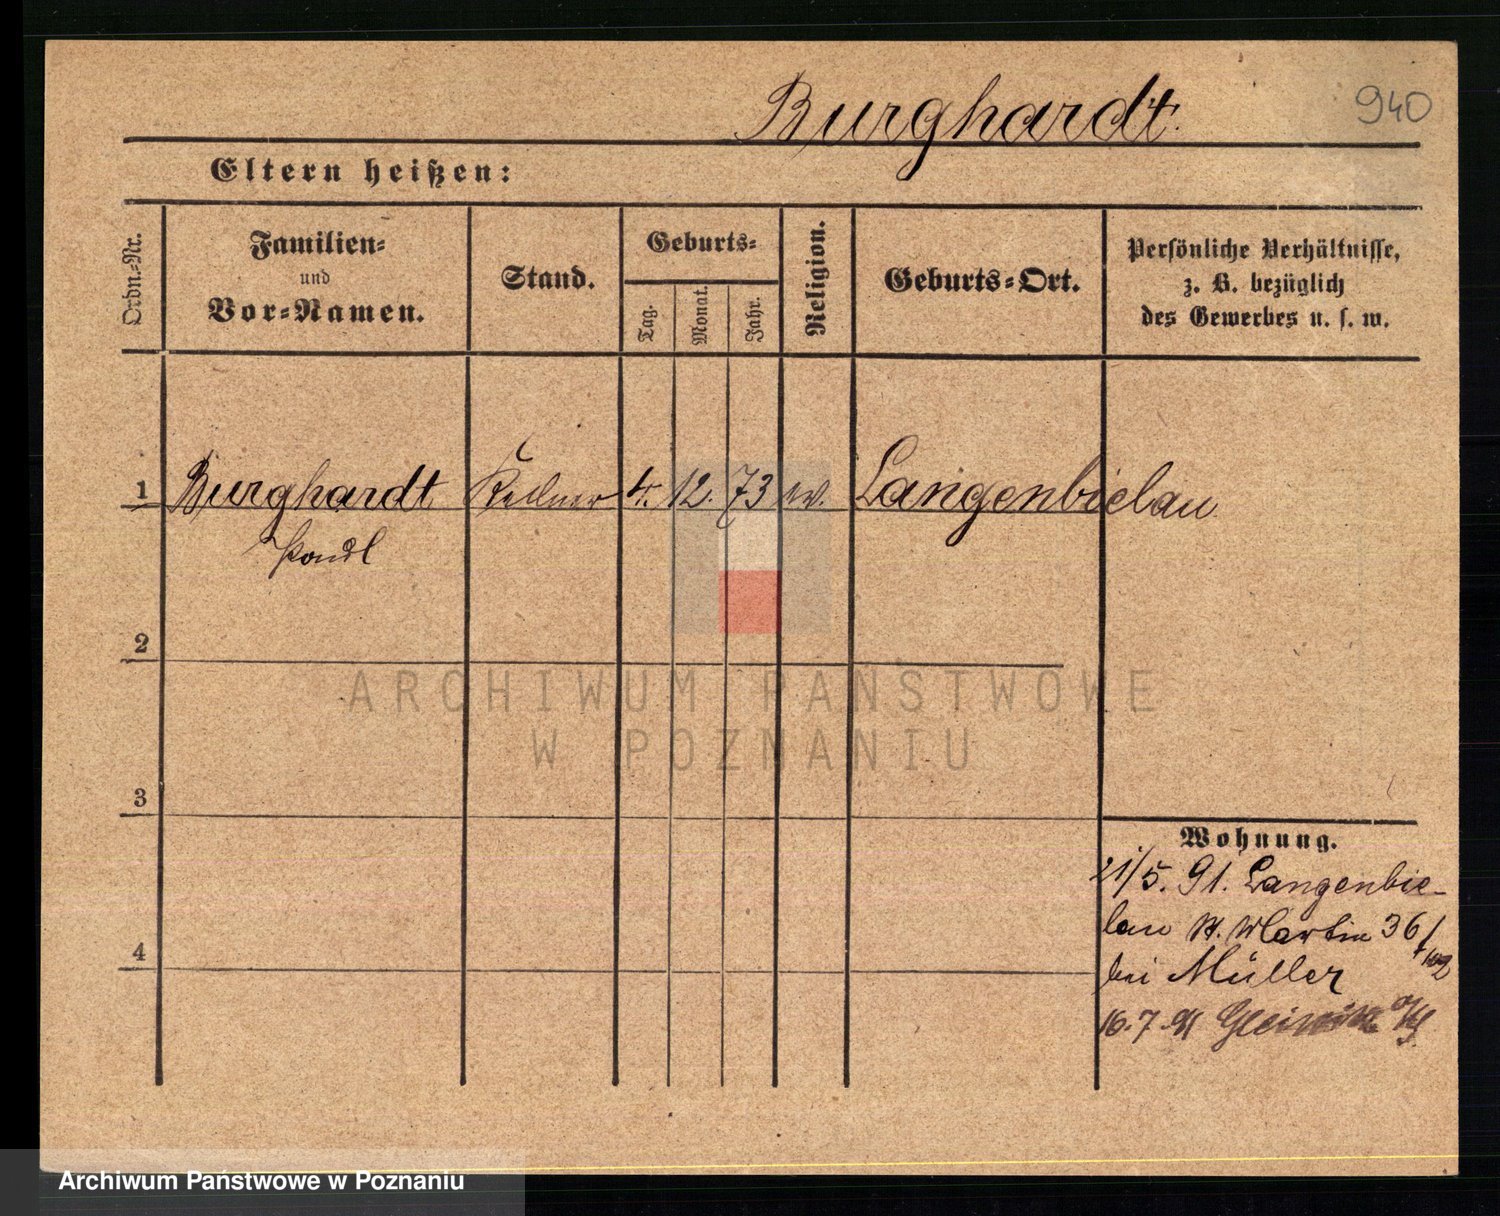 Burghardt.
940
Eltern heißen:
Ordn.-Nr.
Familien-
und
Vor-Namen.
Stand.
Geburts-
Tag.
Monat.
Jahr.
Religion.
Geburts-Ort.
Persönliche Verhältnisse,
z. B. bezüglich
des Gewerbes u. s. w.
1 Burghardt Kellner 4. 12. 73 ev. Langenbielau
2
ARCHIWUM PAŃSTWOWE
W POZNANIU
3
Wohnung.
21/5. 91. Langenbie-
lau St. Martin 36/
bei Müller
4
16.7.91
Archiwum Państwowe w Poznaniu